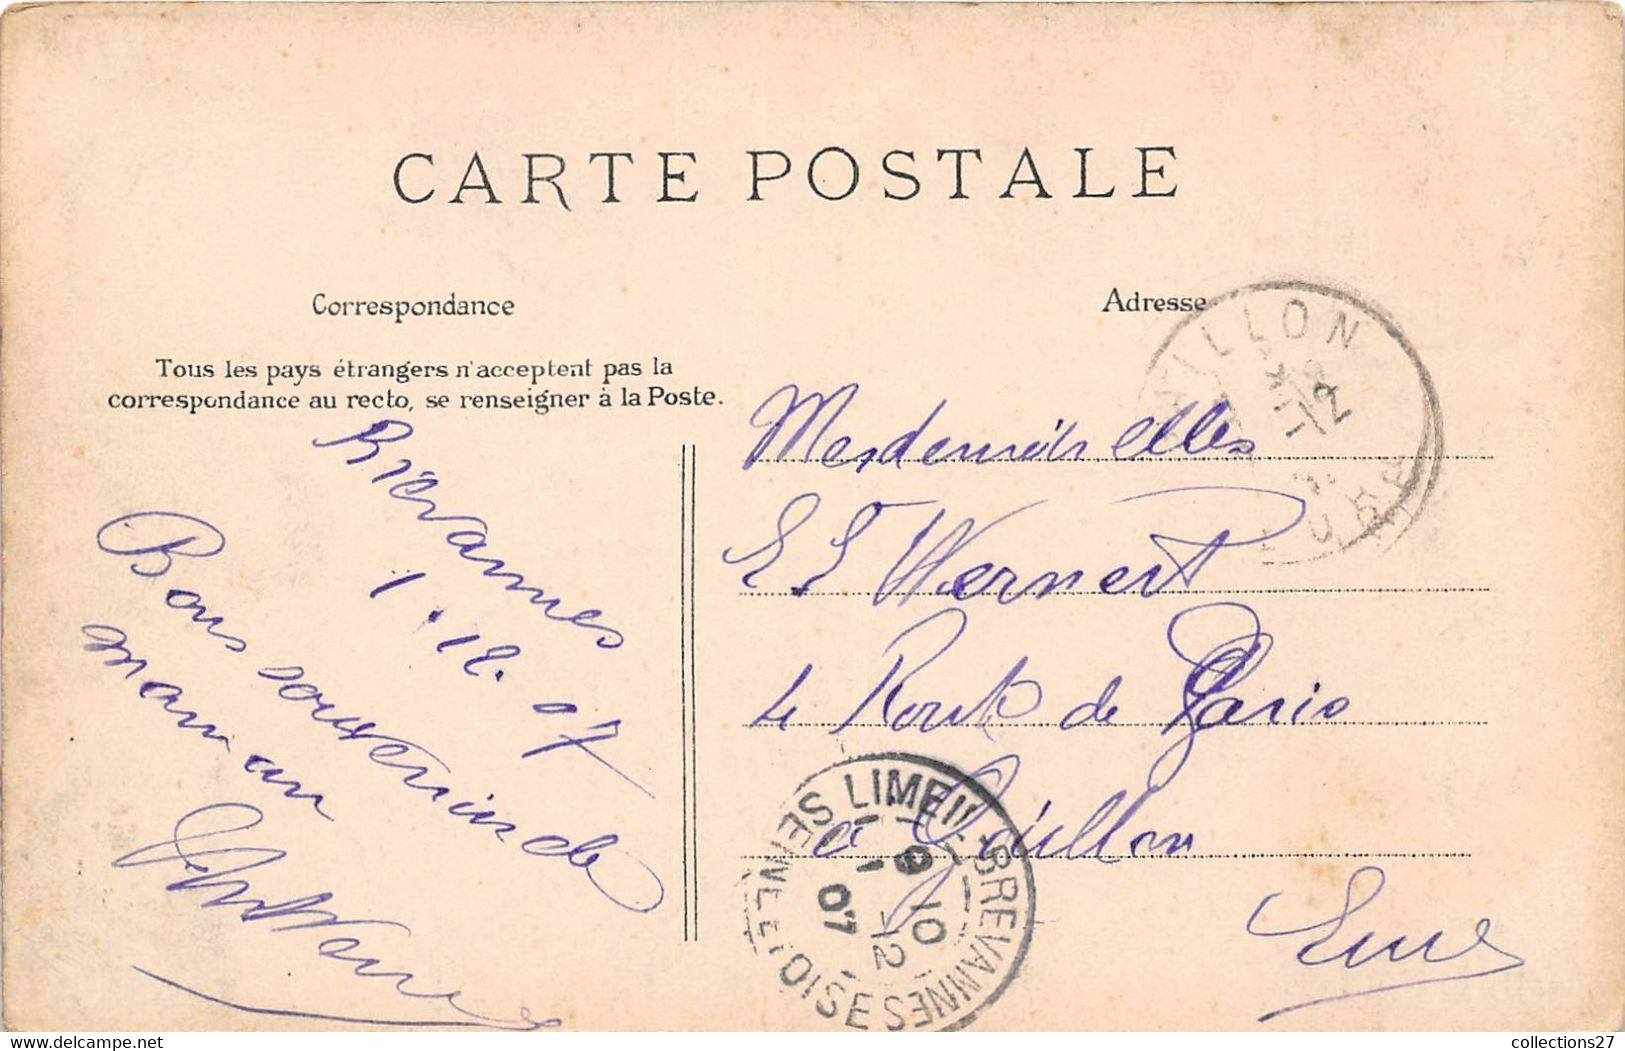 CARTE POSTALE
Correspondance
Adresse
Tous les pays étrangers n'acceptent pas la
correspondance au recto, se renseigner à la Poste.
Brévannes
1.12.07
Bons souvenirs de
maman
Mesdemoiselles
E E Wernert
4 Route de Paris
à Gaillon
Eure
GAILLON
EURE
LIMEIL-BREVANNES
9 10
1 -12
07
SEINE ET OISE
collections27